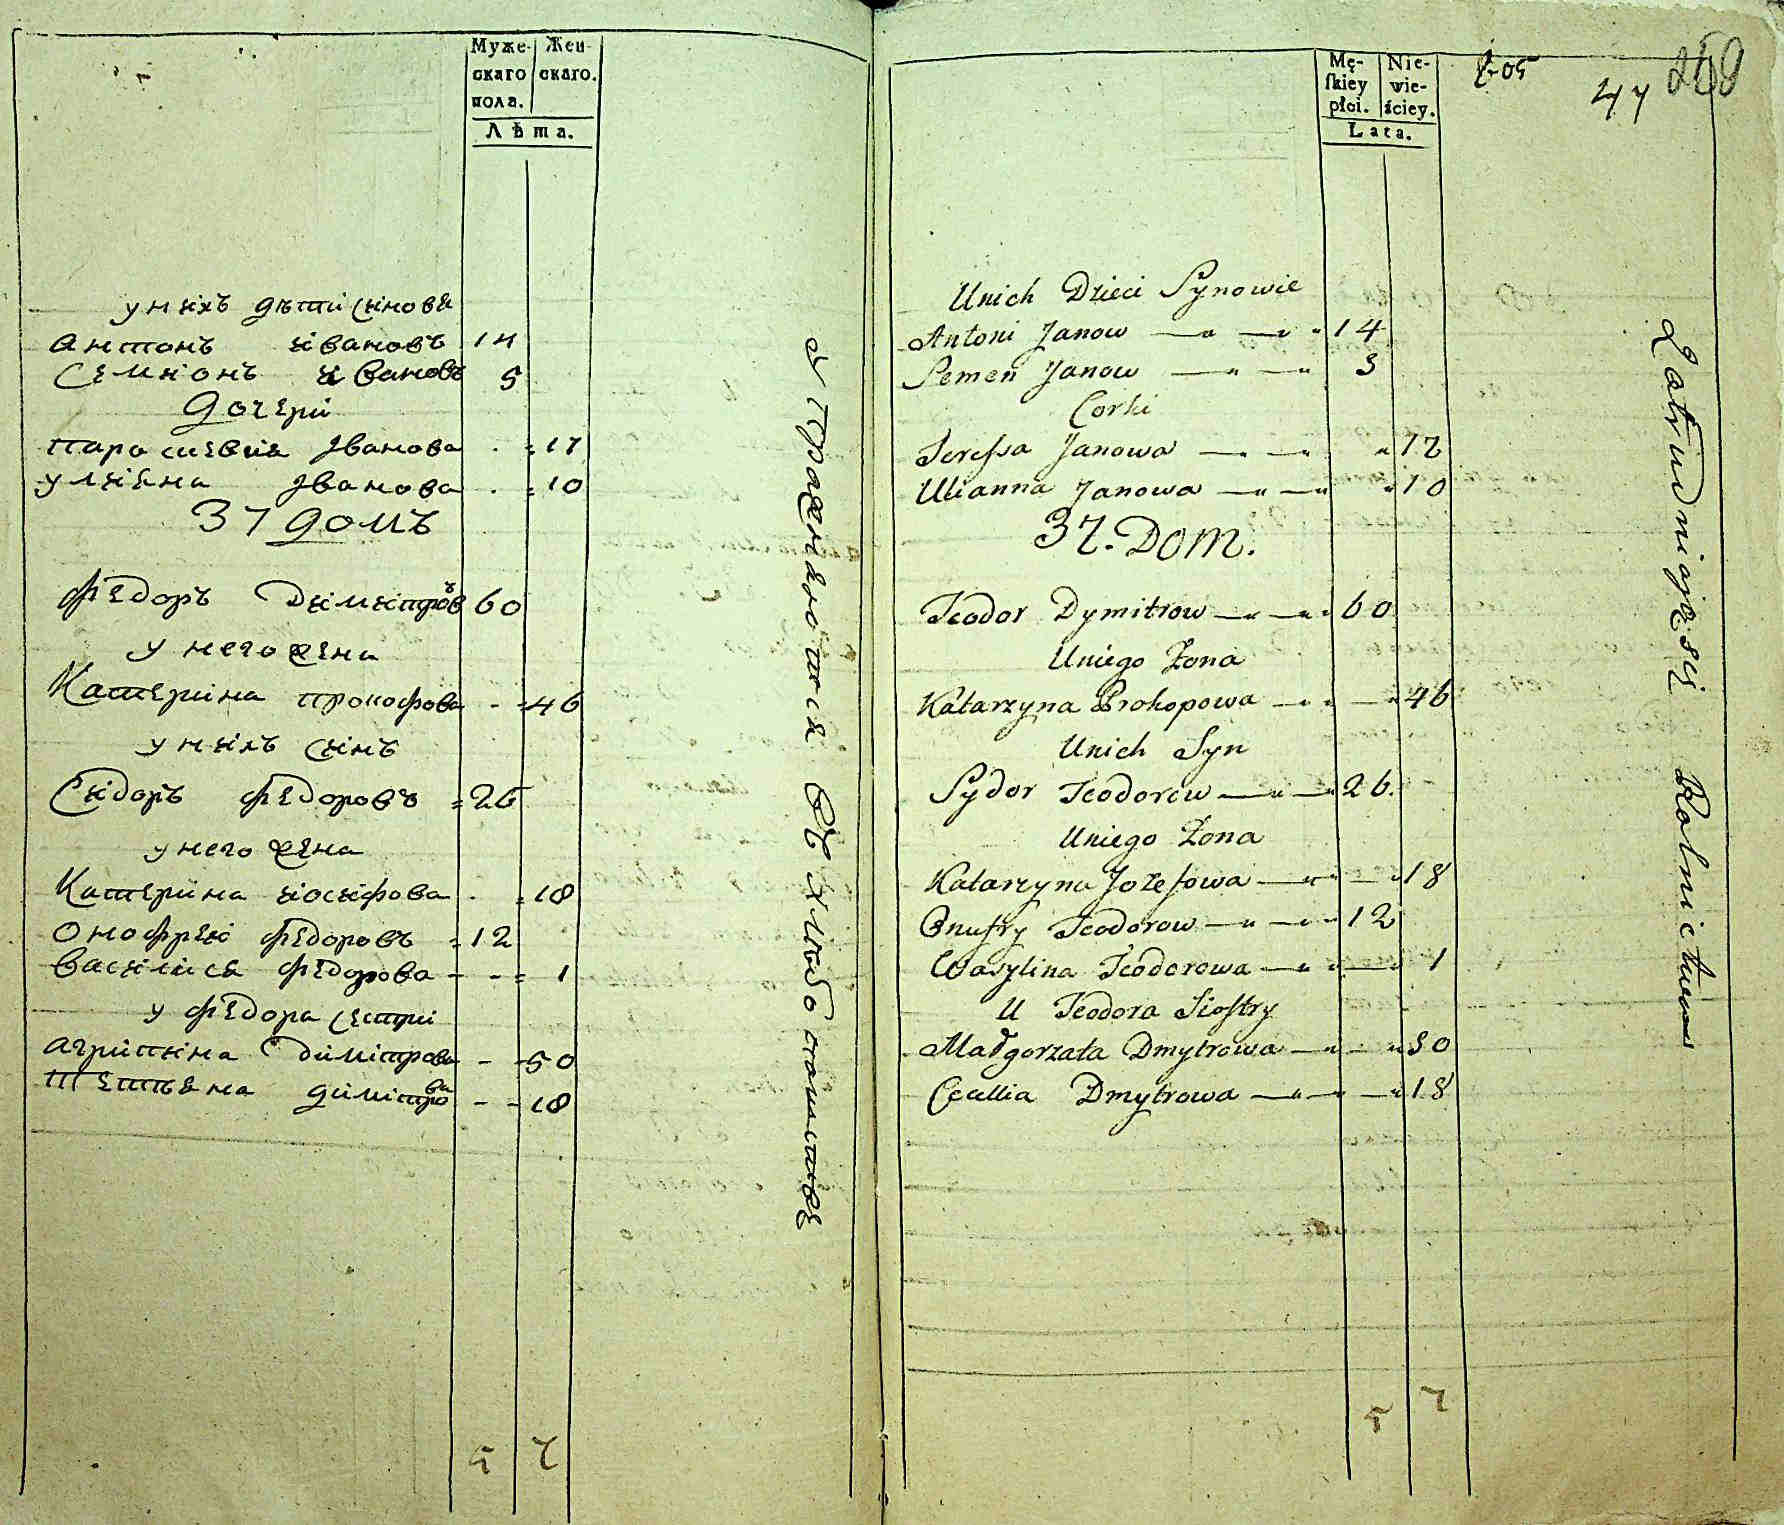 Муже- Жен-
скаго скаго.
пола.
Лѣта.
у нихъ дѣти синовя
Антонъ Ивановъ 14
Семионъ Ивановъ 5
дочери
Парасивия Иванова 17
Улияна Иванова 10
37 домъ
Федоръ Димитровъ 60
у него жена
Катерина Прокофова 46
у нихъ синъ
Сидоръ Федоровъ 26
у него жена
Катерина Иосифова 18
Онофрей Федоровъ 12
Василися Федорова 1
у Федора сестри
Агрипина Димитрова 50
Тетьяна Димитрова 18
5 7
Упражняются въ хлибопашстве
Mę- Nie-
skiey wie-
płci. ściey.
Lata.
47 259
Unich Dzieci Synowie
Antoni Janow 14
Semen Janow 5
Corki
Teressa Janowa 17
Ulianna Janowa 10
37. Dom.
Teodor Dymitrow 60
Uniego Żona
Katarzyna Prokopowa 46
Unich Syn
Sydor Teodorow 26.
Uniego Żona
Katarzyna Jozefowa 18
Onufry Teodorow 12
Wasylina Teodorowa 1
U Teodora Siostry
Małgorzata Dmytrowa 50
Cecellia Dmytrowa 18
5 7
Zatrudniają się Rolnictwem